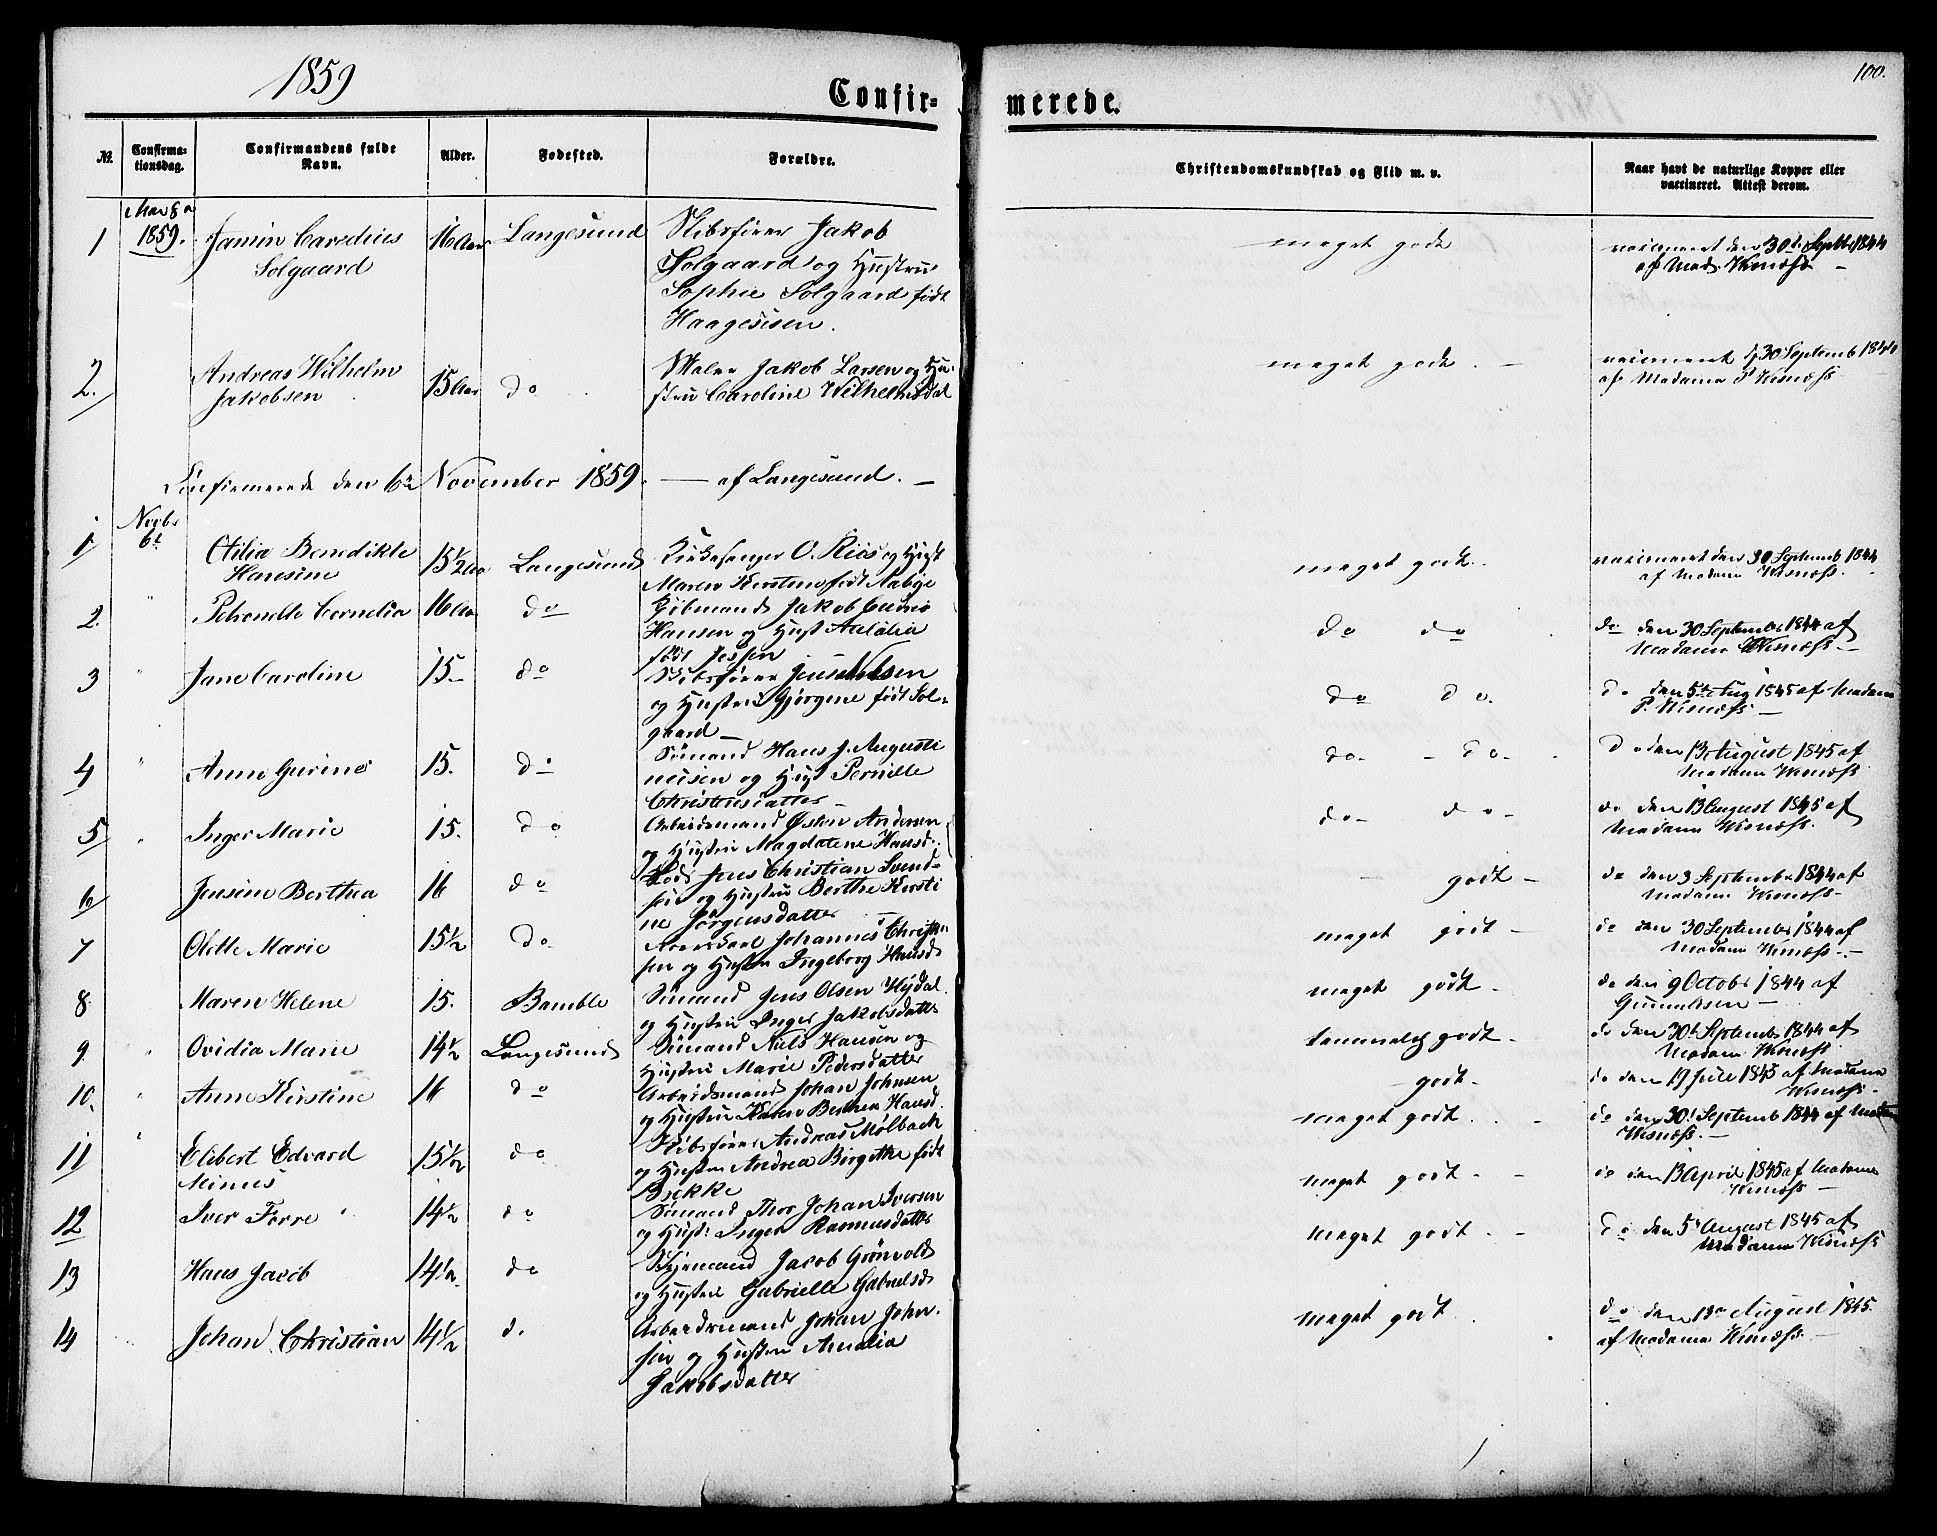 1859
100.
Confir-
merede.
№.
Confirma-
tionsdag.
Confirmandens fulde
Navn.
Alder.
Fødested.
Forældre.
Christendomskundskab og Flid m. v.
Naar havt de naturlige Kopper eller
vaccineret. Attest derom.
1
1859.
Solgaard
16 Aar
Langesund
Skibsfører Jakob
Solgaard og Hustru
Sophie Solgaard født
Haagesisen.
meget godt
vaccineret den 30t Septbr 1844
af Mad.
2.
Andreas Wilhelm
Jakobsen
15 Aar
do
Maler Jakob Larsen og Hu-
stru Caroline Wilhelmsdal
meget godt. —
vaccineret d 30 Septemb 1844
af Madame P
Confirmerede den 6te November 1859. — af Langesund. —
1
Novbr
6t
Otilia Benedikte
Hansine
15½ Aar
Langesund
Kirkesanger O. Riis og Hust
Maren Kirstine født Aabye
meget godt.
vaccineret den 30 Septemb 1844
af Madame
2.
"
Petronelle Cornelia
16 Aar
do
Kjøbmand Jakob
Hansen og Hust Amalia
født Jessen
do do
do den 30 Septembr 1844 af
Madame
3
"
Jane Caroline
15-
do
Skibsfører
og Hustru Gjørgine født Sol-
gaard —
do do.
do den 5t Aug 1845 af Madame
P.
4
"
Anne Gurine
15.
do
Sømand Hans J. Augusti
nussen og Hust Pernille
Christensdatter —
do. - do.
do den 13 August 1845 af
Madame
5
"
Inger Marie
15.
do
Arbeidsmand Østen Andersen
og Hustru Magdalene Hansd.
do- do-
do den 13 August 1845 af
Madame
6
Jensine Berthea
16
do
Lods Jens Christian Svend-
sen og Hustru Berthe Kirsti
ne Jørgensdatter
- godt -
do den 3 Septembr 1844 af
Madame
7
Olette Marie
15½
do
Johannes Christen
sen og Hustru Ingeborg Hansd
meget godt -
do den 30 Septembr 1844 af
Madame
8.
Maren Helene
15.
Bamble
Sømand Jens Olsen
og Hustru Inger Jakobsdatter
meget godt -
do den 9 Octobr 1844 af
Gunnulfsen —
9.
"
Ovidia Marie
14½
Langesund
Sømand Niels Hansen og
Hustru Marie Pedersdatter
temmelig godt -
do den 30t Septembr 1844 af
Madame
10.
"
Anne Kirstine
16
do
Arbeidsmand Johan Johnsen
og Hustru Karen Berthea Hansd.
- godt -
do den 19 Julii 1845 af Madame
11
"
Elibert Edvard
Minus
15½
do
Skibsfører Andreas Mølback
og Hustru Andrea Birgitte født
Bække
meget godt. -
do den 30t Septemb 1844 af Madam
12
Iver Tørre
14½
do
Sømand Thor Johan Iversen
og Hustr: Inger Rasmusdatter
meget godt. -
do den 13 April 1845 af Madame
13
Hans Jacob
14½
do
Jacob Grønvold
og Hustru Gabrielle Gabrielsd
meget godt. -
do den 5t August 1845 af
Madame
14
Johan Christian
14½
d.
Arbeidsmand Johan John-
sen og Hustru Amalia
Jakobsdatter
meget godt
do den 13 August 1845.
af Madame